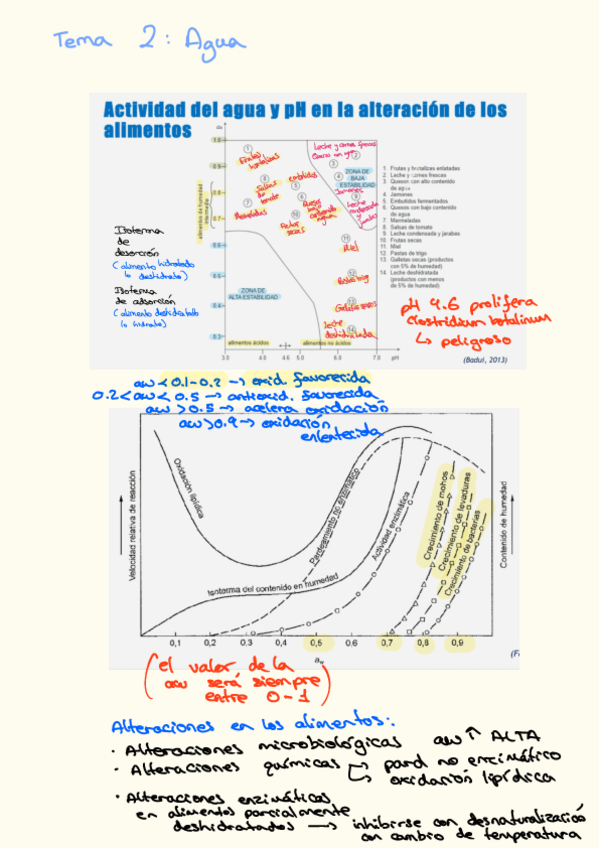 Tema 2: Agua
Actividad del agua y pH en la alteración de los
alimentos
aw
1.0
0.9
0.8
0.7
0.6
0.5
0.4
0.3
alimentos con humedad
intermedia
1
Frutas
hortalizas
Leche y carnes frescas
Queso con agua
3
2
8
Salsas
de
tomate
embutidos
5
4
Jamones
ZONA DE
BAJA
ESTABILIDAD
7
Mermeladas
6
Quesos
bajo
contenido
agua
9
Leche
condensada
y jarabes
10
Frutas
secas
11
Miel
12
Pastas trigo
13
Galletas secas
leche
14
deshidratada
ZONA DE
ALTA ESTABILIDAD
alimentos ácidos
alimentos no ácidos
3.0 4.0 4.6 5.0 6.0 7.0 pH
1. Frutas y hortalizas enlatadas
2. Leche y carnes frescas
3. Quesos con alto contenido
de agua
4. Jamones
5. Embutidos fermentados
6. Quesos con bajo contenido
de agua
7. Mermeladas
8. Salsas de tomate
9. Leche condensada y jarabes
10. Frutas secas
11. Miel
12. Pastas de trigo
13. Galletas secas (productos
con 5% de humedad)
14. Leche deshidratada
(productos con menos
de 5% de humedad)
(Badui, 2013)
Isoterma
de
desorción
(alimento hidratado
lo deshidrato)
Isoterma
de adsorción
(alimento deshidratado
lo hidrato)
pH 4.6 prolifera
clostridium botulinum
↳ peligroso
aw < 0.1-0.2 → oxid. favorecida
0.2 < aw < 0.5 → antioxid. favorecida
aw > 0.5 → acelera oxidación
aw > 0.9 → oxidación
enlentecida
Velocidad relativa de reacción
Contenido de humedad
Oxidación lipídica
Pardeamiento no enzimático
Isoterma del contenido en humedad
Actividad enzimática
Crecimiento de mohos
Crecimiento de levaduras
Crecimiento de bacterias
0,1 0,2 0,3 0,4 0,5 0,6 0,7 0,8 0,9
aw
(el valor de la
aw será siempre
entre 0-1)
Alteraciones en los alimentos:
· Alteraciones microbiológicas aw ↑ ALTA
· Alteraciones químicas → pard no enzimático
→ oxidación lipídica
· Alteraciones enzimáticas
en alimentos parcialmente
deshidratados → inhibirse con desnaturalización
con cambio de temperatura